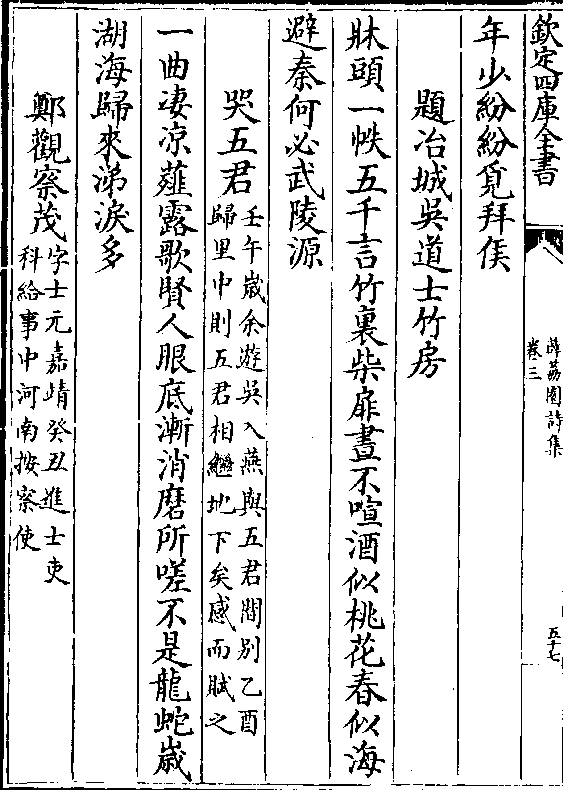 欽定四庫全書
薜荔園詩集
卷三
五十七
年少紛紛覓拜侯
題冶城吳道士竹房
牀頭一帙五千言竹裏柴扉晝不喧酒似桃花春似海
避秦何必武陵源
哭五君
壬午歲余遊吳入燕與五君闊别乙酉
歸里中則五君相繼地下矣感而賦之
一曲凄凉薤露歌賢人眼底漸消磨所嗟不是龍蛇歲
湖海歸來涕淚多
鄭觀察茂
字士元嘉靖癸丑進士吏
科給事中河南按察使